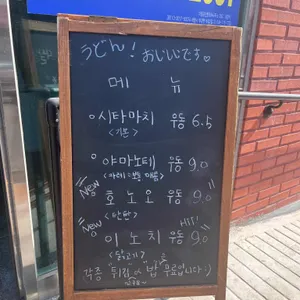 うどん! おいしいです♡
메 뉴
시타마치 우동 6.5
<기본>
야마노테 우동 9.0
New 호노오 우동 9.0
<탄탄>
New 이노치 우동 9.0
HIT!
<닭고기>
각종 튀김 밥 무료입니다 :)